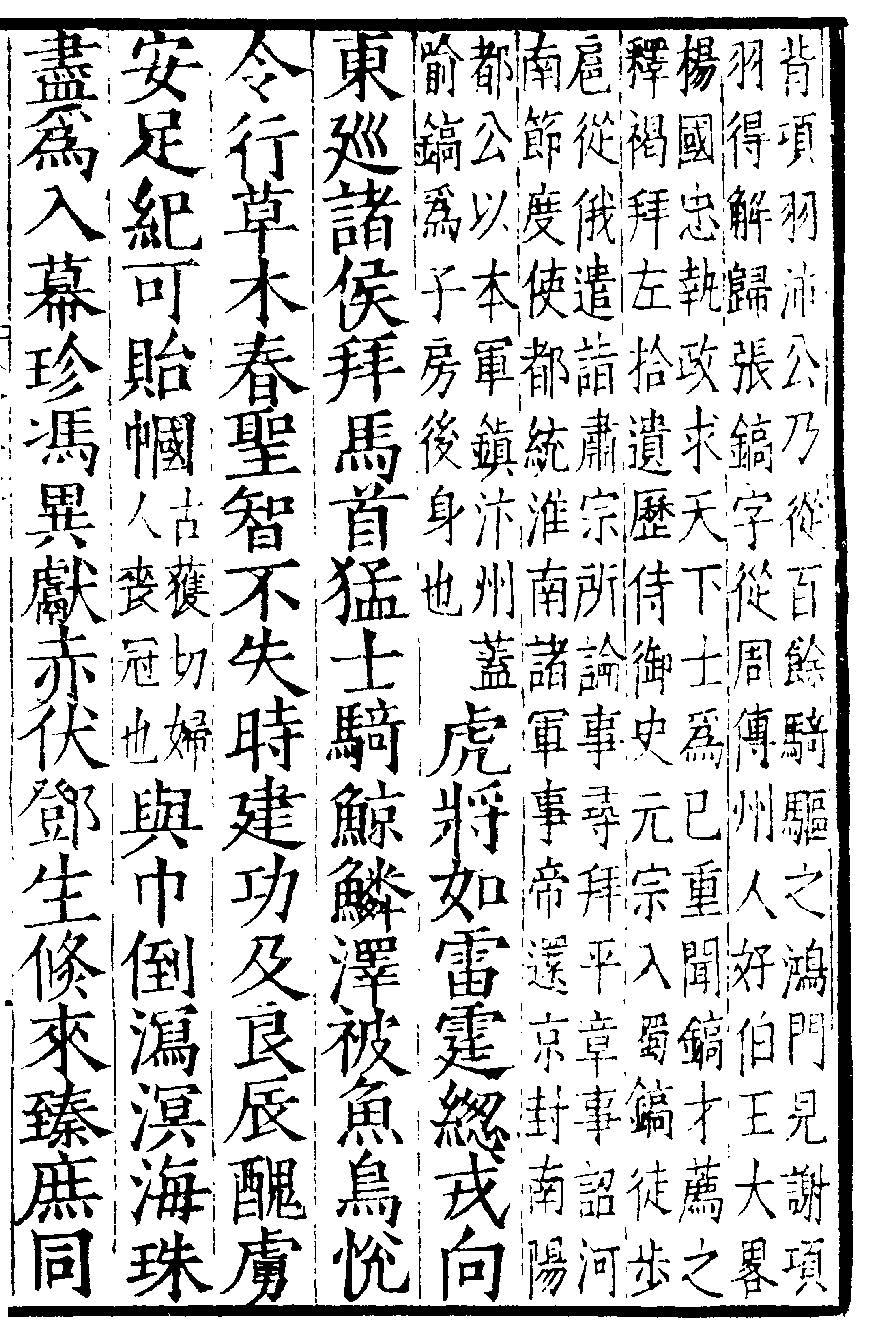 背項羽沛公乃從百餘騎驅之鴻門見謝項
羽得解歸張鎬字從周傳州人好伯王大畧
楊國忠執政求天下士爲已重聞鎬才薦之
釋褐拜左拾遺歷侍御史元宗入蜀鎬徒歩
扈從俄遣詣肅宗所論事尋拜平章事詔河
南節度使都統淮南諸軍事帝還京封南陽
都公以本軍鎮汴州蓋
喻鎬爲子房後身也
虎將如雷霆緫戎向
東廵諸侯拜馬首猛士騎鯨鱗澤被魚鳥恱
令行草木春聖智不失時建功及良辰醜虜
安足紀可貽幗古獲切婦人喪冠也與巾倒瀉溟海珠
盡爲入幕珍馮異獻赤伏鄧生倐來臻庶同